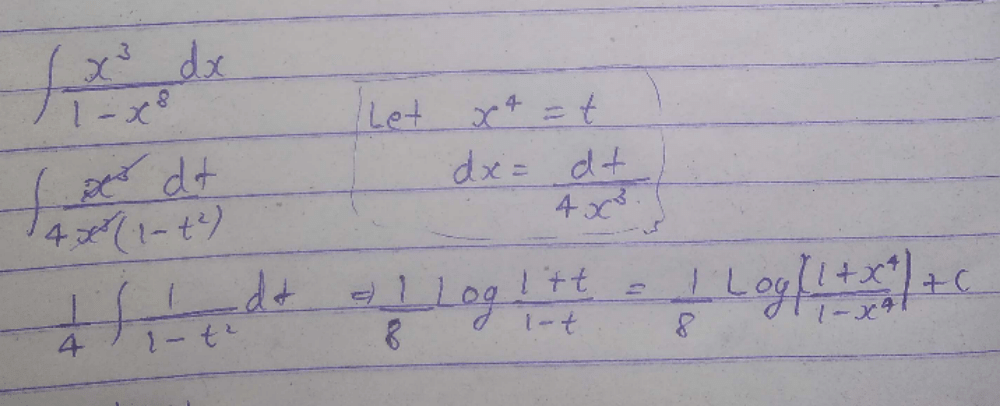 ∫ x³ dx / 1 - x⁸
Let x⁴ = t
dx = dt / 4x³
∫ x³ dt / 4x³(1 - t²)
1/4 ∫ 1/1 - t² dt ⇒ 1/8 Log 1+t/1-t = 1/8 Log |1+x⁴/1-x⁴| + C